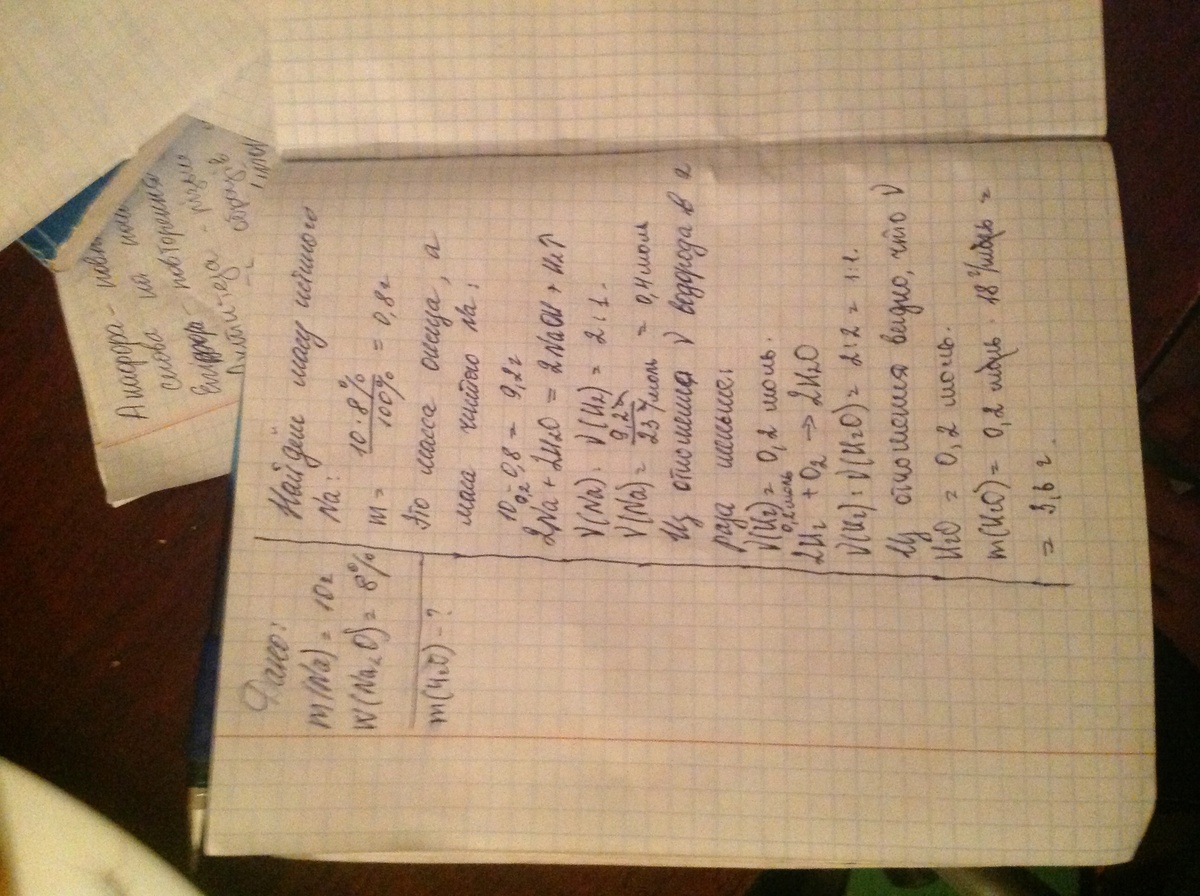 Дано:
m(Na) = 10г
W(Na₂O) = 8%
m(H₂O) - ?
Найдём массу
Na:
m = 10 · 8% / 100% = 0,8г
Это масса оксида, а
масса чистого Na:
10г - 0,8 = 9,2г
2Na + 2H₂O = 2NaOH + H₂↑
ν(Na) : ν(H₂) = 2 : 1.
ν(Na) = 9,2г / 23 г/моль = 0,4 моль
Из отношения ν водорода в 2
раза меньше:
ν(H₂) = 0,2 моль.
0,2 моль
2H₂ + O₂ → 2H₂O
ν(H₂) : ν(H₂O) = 2 : 2 = 1 : 1.
Из отношения видно, что ν
H₂O = 0,2 моль.
m(H₂O) = 0,2 моль · 18 г/моль =
= 3,6 г.
Анафора -
слова на
повторення
Антитеза -
образів